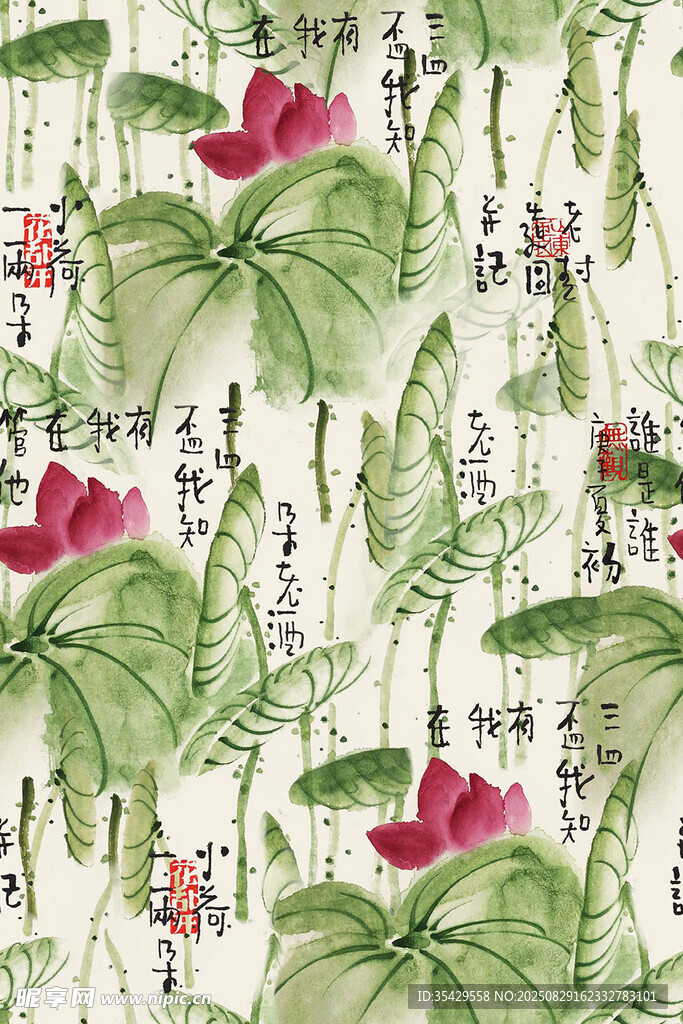 三四
盃我知
有
我
在
小荷
一兩朵
花都开
老村
並記
三四
盃我知
有
我
在
管他
老酒
誰是誰
無觀
夏初
朵老酒
三四
盃我知
有
我
在
小荷
一兩朵
花都开
並記
昵享网 www.nipic.cn
ID:35429558 NO:20250829162332783101